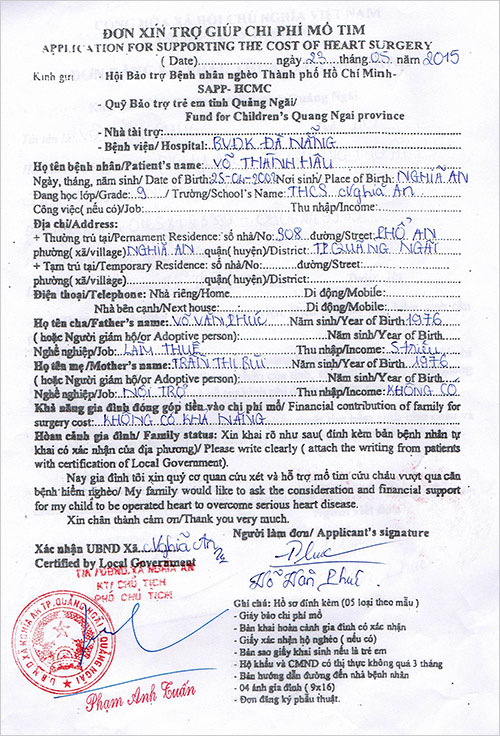 ĐƠN XIN TRỢ GIÚP CHI PHÍ MỔ TIM
APPLICATION FOR SUPPORTING THE COST OF HEART SURGERY
( Date)............... ngày..23...tháng.05. năm 2015
Kính gửi - Hội Bảo trợ Bệnh nhân nghèo Thành phố Hồ Chí Minh-
SAPP- HCMC
- Quỹ Bảo trợ trẻ em tỉnh Quảng Ngãi/
Fund for Children's Quang Ngai province
- Nhà tài trợ:
- Bệnh viện/ Hospital: BVĐK ĐÀ NẴNG
Họ tên bệnh nhân/Patient's name: VÕ THÀNH HẬU
Ngày, tháng, năm sinh/ Date of Birth: 25-04-2002 Nơi sinh/ Place of Birth: NGHĨA AN
Đang học lớp/Grade: 9 / Trường/School's Name: THCS Nghĩa An
Công việc( nếu có)/Job: Thu nhập/Income:
Địa chỉ/Address:
+ Thường trú tại/Pernament Residence: số nhà/No: 908 đường/Street: PHỔ AN
phường( xã/village) NGHĨA AN quận( huyện)/District: TP.QUẢNG NGÃI
+ Tạm trú tại/Temporary Residence: số nhà/No: đường/Street:
phường( xã/village) quận( huyện)/District:
Điện thoại/Telephone: Nhà riêng/Home Di động/Mobile:
Nhà bên cạnh/Next house: Di động/Mobile:
Họ tên cha/Father's name: VÕ VĂN PHÚC Năm sinh/Year of Birth 1976
( hoặc Người giám hộ/or Adoptive person): Năm sinh/Year of Birth
Nghề nghiệp/Job: LÀM THUÊ Thu nhập/Income:
Họ tên mẹ/Mother's name: TRẦN THỊ BÚC Năm sinh/Year of Birth 1976
( hoặc Người giám hộ/or Adoptive person): Năm sinh/Year of Birth
Nghề nghiệp/Job: NỘI TRỢ Thu nhập/Income: KHÔNG CÓ
Khả năng gia đình đóng góp tiền vào chi phí mổ/ Financial contribution of family for
surgery cost: KHÔNG CÓ KHẢ NĂNG
Hoàn cảnh gia đình/ Family status: Xin khai rõ như sau( đính kèm bản bệnh nhân tự
khai có xác nhận của địa phương)/ Please write clearly ( attach the writing from patients
with certification of Local Government).
Nay gia đình tôi xin quý cơ quan cứu xét và hỗ trợ mổ tim cứu cháu vượt qua căn
bệnh hiểm nghèo/ My family would like to ask the consideration and financial support
for my child to be operated heart to overcome serious heart disease.
Xin chân thành cảm ơn/Thank you very much.
Người làm đơn/ Applicant's signature
Xác nhận UBND Xã. Nghĩa An
Phuc
Certified by Local Government
Võ Văn Phúc
TM/UBND.XÃ NGHĨA AN
KT/ CHỦ TỊCH
PHÓ CHỦ TỊCH
U.B.N.D XÃ NGHĨA AN TP.QUẢNG NGÃI T.QUẢNG NGÃI
Phạm Anh Tuấn
Ghi chú: Hồ sơ đính kèm (05 loại theo mẫu )
- Giấy báo chi phí mổ
- Bản khai hoàn cảnh gia đình có xác nhận
- Giấy xác nhận hộ nghèo ( nếu có)
- Bản sao giấy khai sinh nếu là trẻ em
- Hộ khẩu và CMND có thị thực không quá 3 tháng
- Bản hướng dẫn đường đến nhà bệnh nhân
- 04 ảnh gia đình ( 9x16)
- Đơn đăng ký phẫu thuật.